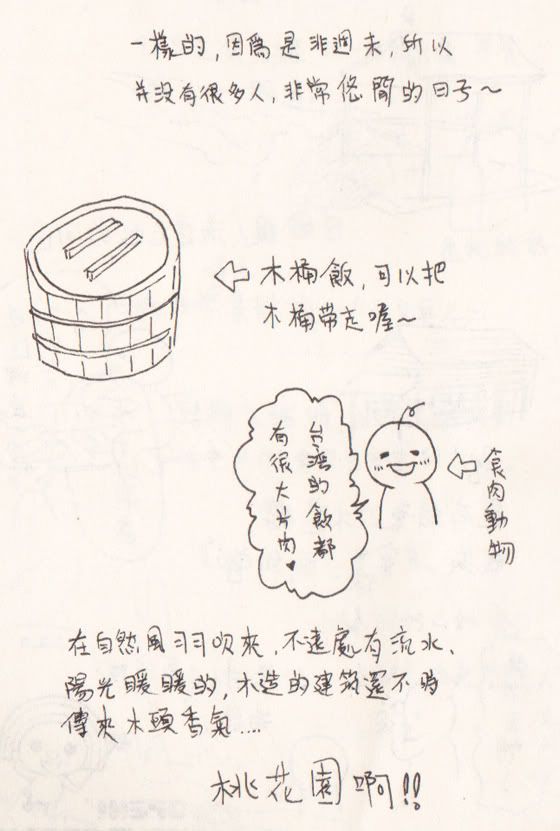 一樣的,因為是非週末,所以
并沒有很多人,非常悠閒的日子～
木桶飯,可以把
木桶帶走喔～
台灣的飯都
有很大片肉♥
食肉動物
在自然風羽吹來,不遠處有流水、
陽光暖暖的,木造的建築還不時
傳來木頭香氣....
桃花園啊!!